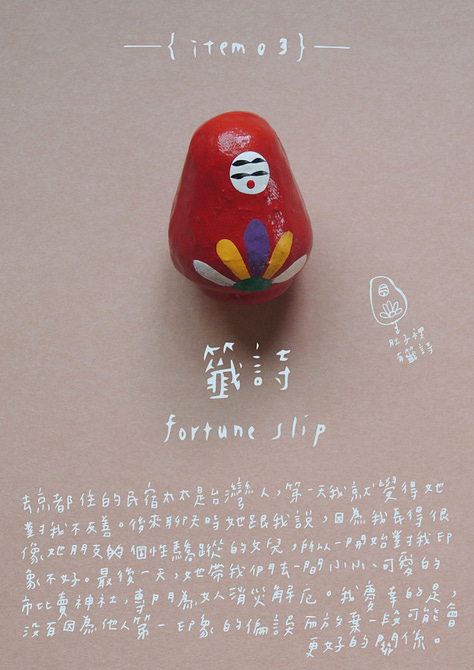 { item 03 }
肚子裡
有籤詩
籤詩
fortune slip
去京都住的民宿太太是台灣人,第一天我就覺得她
對我不友善。後來聊天時她跟我說,因為我長得很
像她朋友的個性驕蹤的女兒,所以一開始對我印
象不好。最後一天,她帶我們去一間小小、可愛的
市比賣神社,專門為女人消災解厄。我慶幸的是,
沒有因為他人第一印象的偏誤而放棄一段可能會
更好的關係。